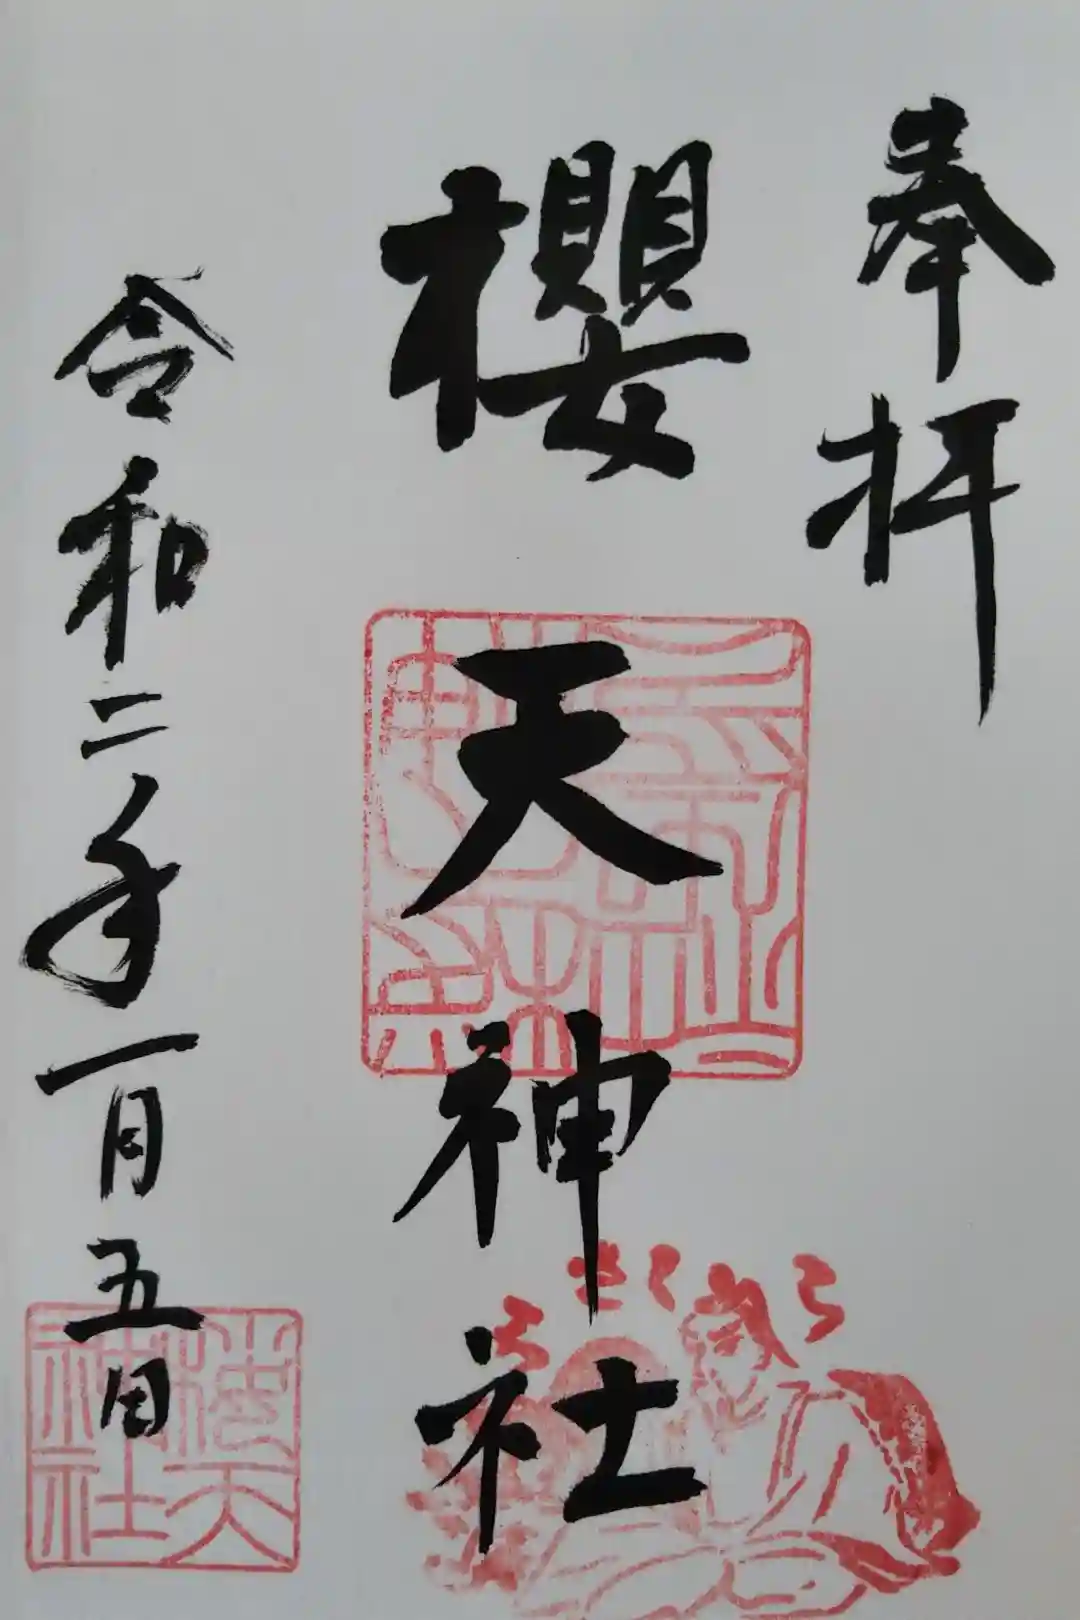 奉拝
櫻天神社
令和二年一月五日
櫻天
神社